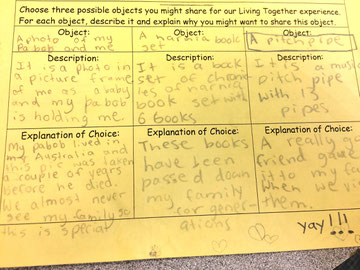 Choose three possible objects you might share for our Living Together experience.
For each object, describe it and explain why you might want to share this object.
Object:
A photo of my
Pabob and me
Description:
It is a photo in
a picture frame
of me as a baby
and my pabob
is holding me.
Explanation of Choice:
My pabob lived in
Australia and
this pic was taken
a couple of years
before he died.
We almost never
see my family so
this is special
Object:
A narnia book
set
Description:
It is a book
set of chron
les of narnia
book set with
6 books
Explanation of Choice:
These books
have been
passed down
my family
for gener-
ations
Object:
A pitch pipe
Description:
It is a music
pitch pipe
with 13
pipes
Explanation of Choice:
A really go
friend gave
it to my fa
when we v
them.
yay!!!